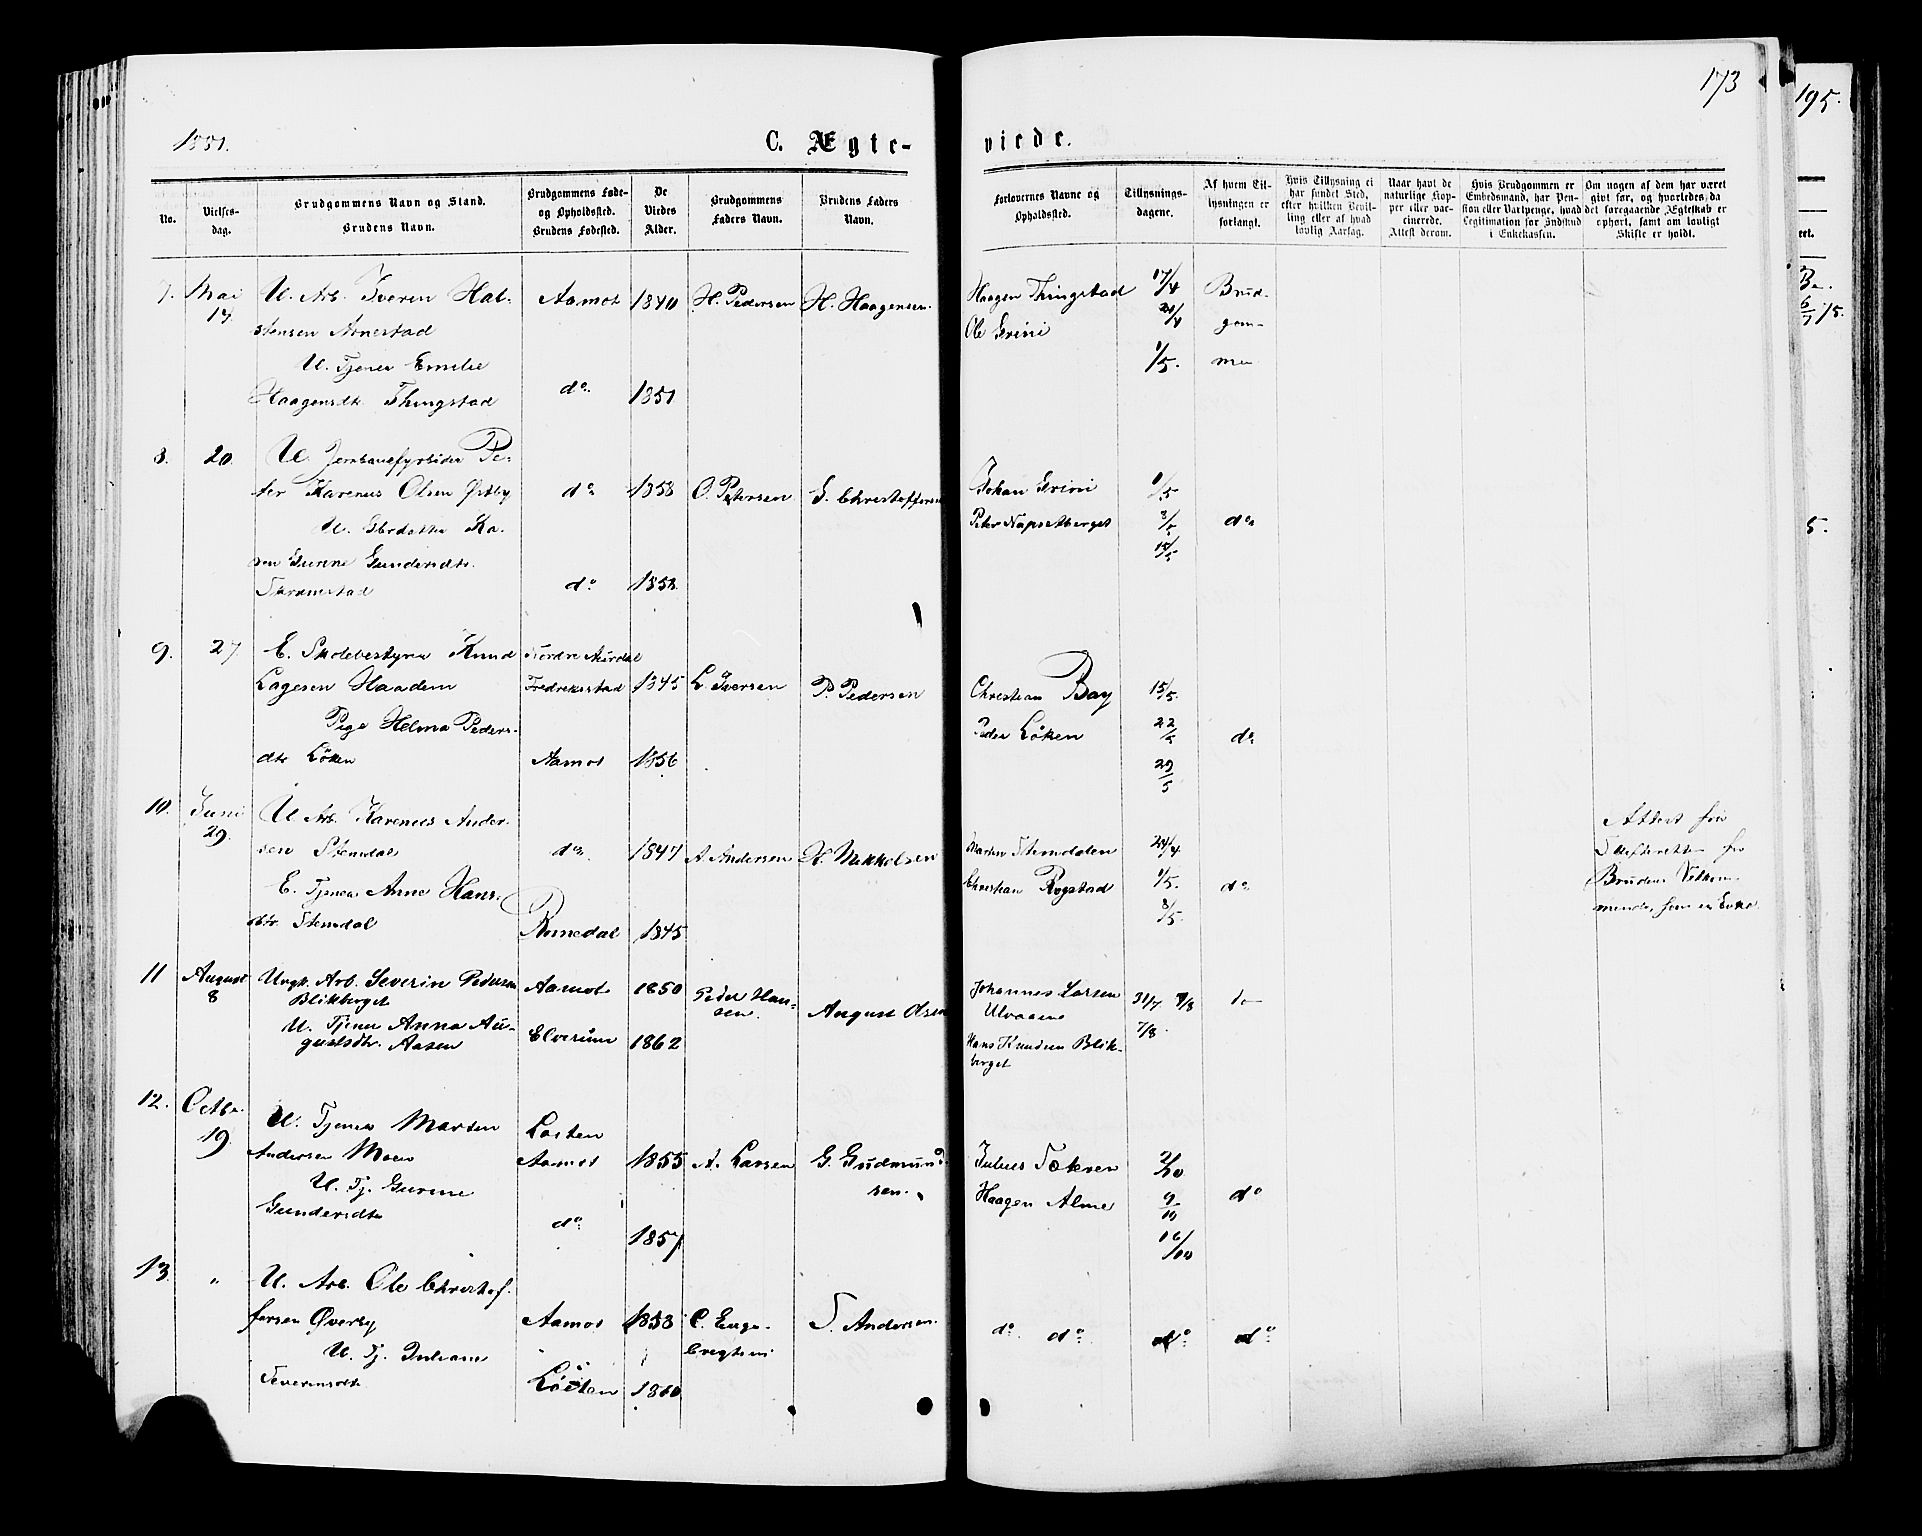 173
195.
1881.
C. Ægte-
viede.
No.
Vielses-
dag.
Brudgommens Navn og Stand.
Brudens Navn.
Brudgommens Føde-
og Opholdssted.
Brudens Fødested.
De
Viedes
Alder.
Brudgommens
Faders Navn.
Brudens Faders
Navn.
Forlovernes Navne og
Opholdssted.
Tillysnings-
dagene.
Af hvem Til-
lysningen er
forlangt.
Hvis Tillysning ei
har fundet Sted,
efter hvilken Bevil-
ling eller af hvad
lovlig Aarsag.
Naar havt de
naturlige Kop-
per eller vac-
cinerede.
Attest derom.
Hvis Brudgommen er
Embedsmand, har Pen-
sion eller Vartpenge, hvad
Legitimation for Indskud
i Enkekassen.
Om nogen af dem har været
gift før, og hvorledes da
det foregaaende Ægteskab er
ophørt, samt om lovligt
Skifte er holdt.
7. Mai
14.
U. Arb. Iveren Hal-
stensen Arnestad
U. Tjener Emilie
Haagensdtr Thingstad
Aamot 1840 H. Pedersen H. Haagensen.
do. 1851
Haagen Thingstad 17/4 Brud-
Ole Grini 24/4 gom-
1/5. men
8. 20.
U. Jernbanefyrbøder Pe-
ter Karenus Olsen Østby
U. Gbrdatter Ka-
ren Gundersdtr.
do 1853 O. Petersen G. Christoffersen
do. 1858
Johan Grini 1/5
Peter 8/5 do
15/5
9. 27
E. Skolebestyrer Knud
Lagesen Haadem
Pige Helma Peders-
dtr Löken
Nordre Aurdal
Fredrikstad 1845 L. Iversen P. Pedersen
Aamot 1856
Christian Bay 15/5.
Peder Löken 22/5 do
29/5
10. Juni
29.
U. Arb. Karenus Ander-
sen Stemdal
E. Tjener Anne Hans-
dtr. Stemdal
do 1847 A. Andersen H. Mikkelsen
1845
Martin Stemdalen 24/4
Christian Rogstad 1/5. do
8/5
Attest fra
Skifteretten for
Brudens Vedkom-
mende, som er Enke
11 August
8
Ungk. Arb. Severin Pedersen
Blikberget
U. Tjener Anna Au-
gustsdtr. Aasen
Aamot 1850 Peder Han-
sen. August Olsen
Elverum 1862
Johannes Larsen 31/7 do
Ulvaaene 7/8.
Hans Knudsen Blik-
berget
12. Octbr.
19.
U. Tjener Martin
Andersen Moen
U. Tj. Gurine
Gundersdtr
Løiten
Aamot 1855 A. Larsen G. Gudmund-
sen.
do. 1857
Julius 2/10
Haagen Alme 9/10 do
16/10
13. "
U. Arb. Ole Christof-
fersen Øverby
U. Tj. Juliane
Severinsdtr
Aamot 1858 C. Enge-
bregtsen S. Andersen.
Löiten 1860
do. do. do do